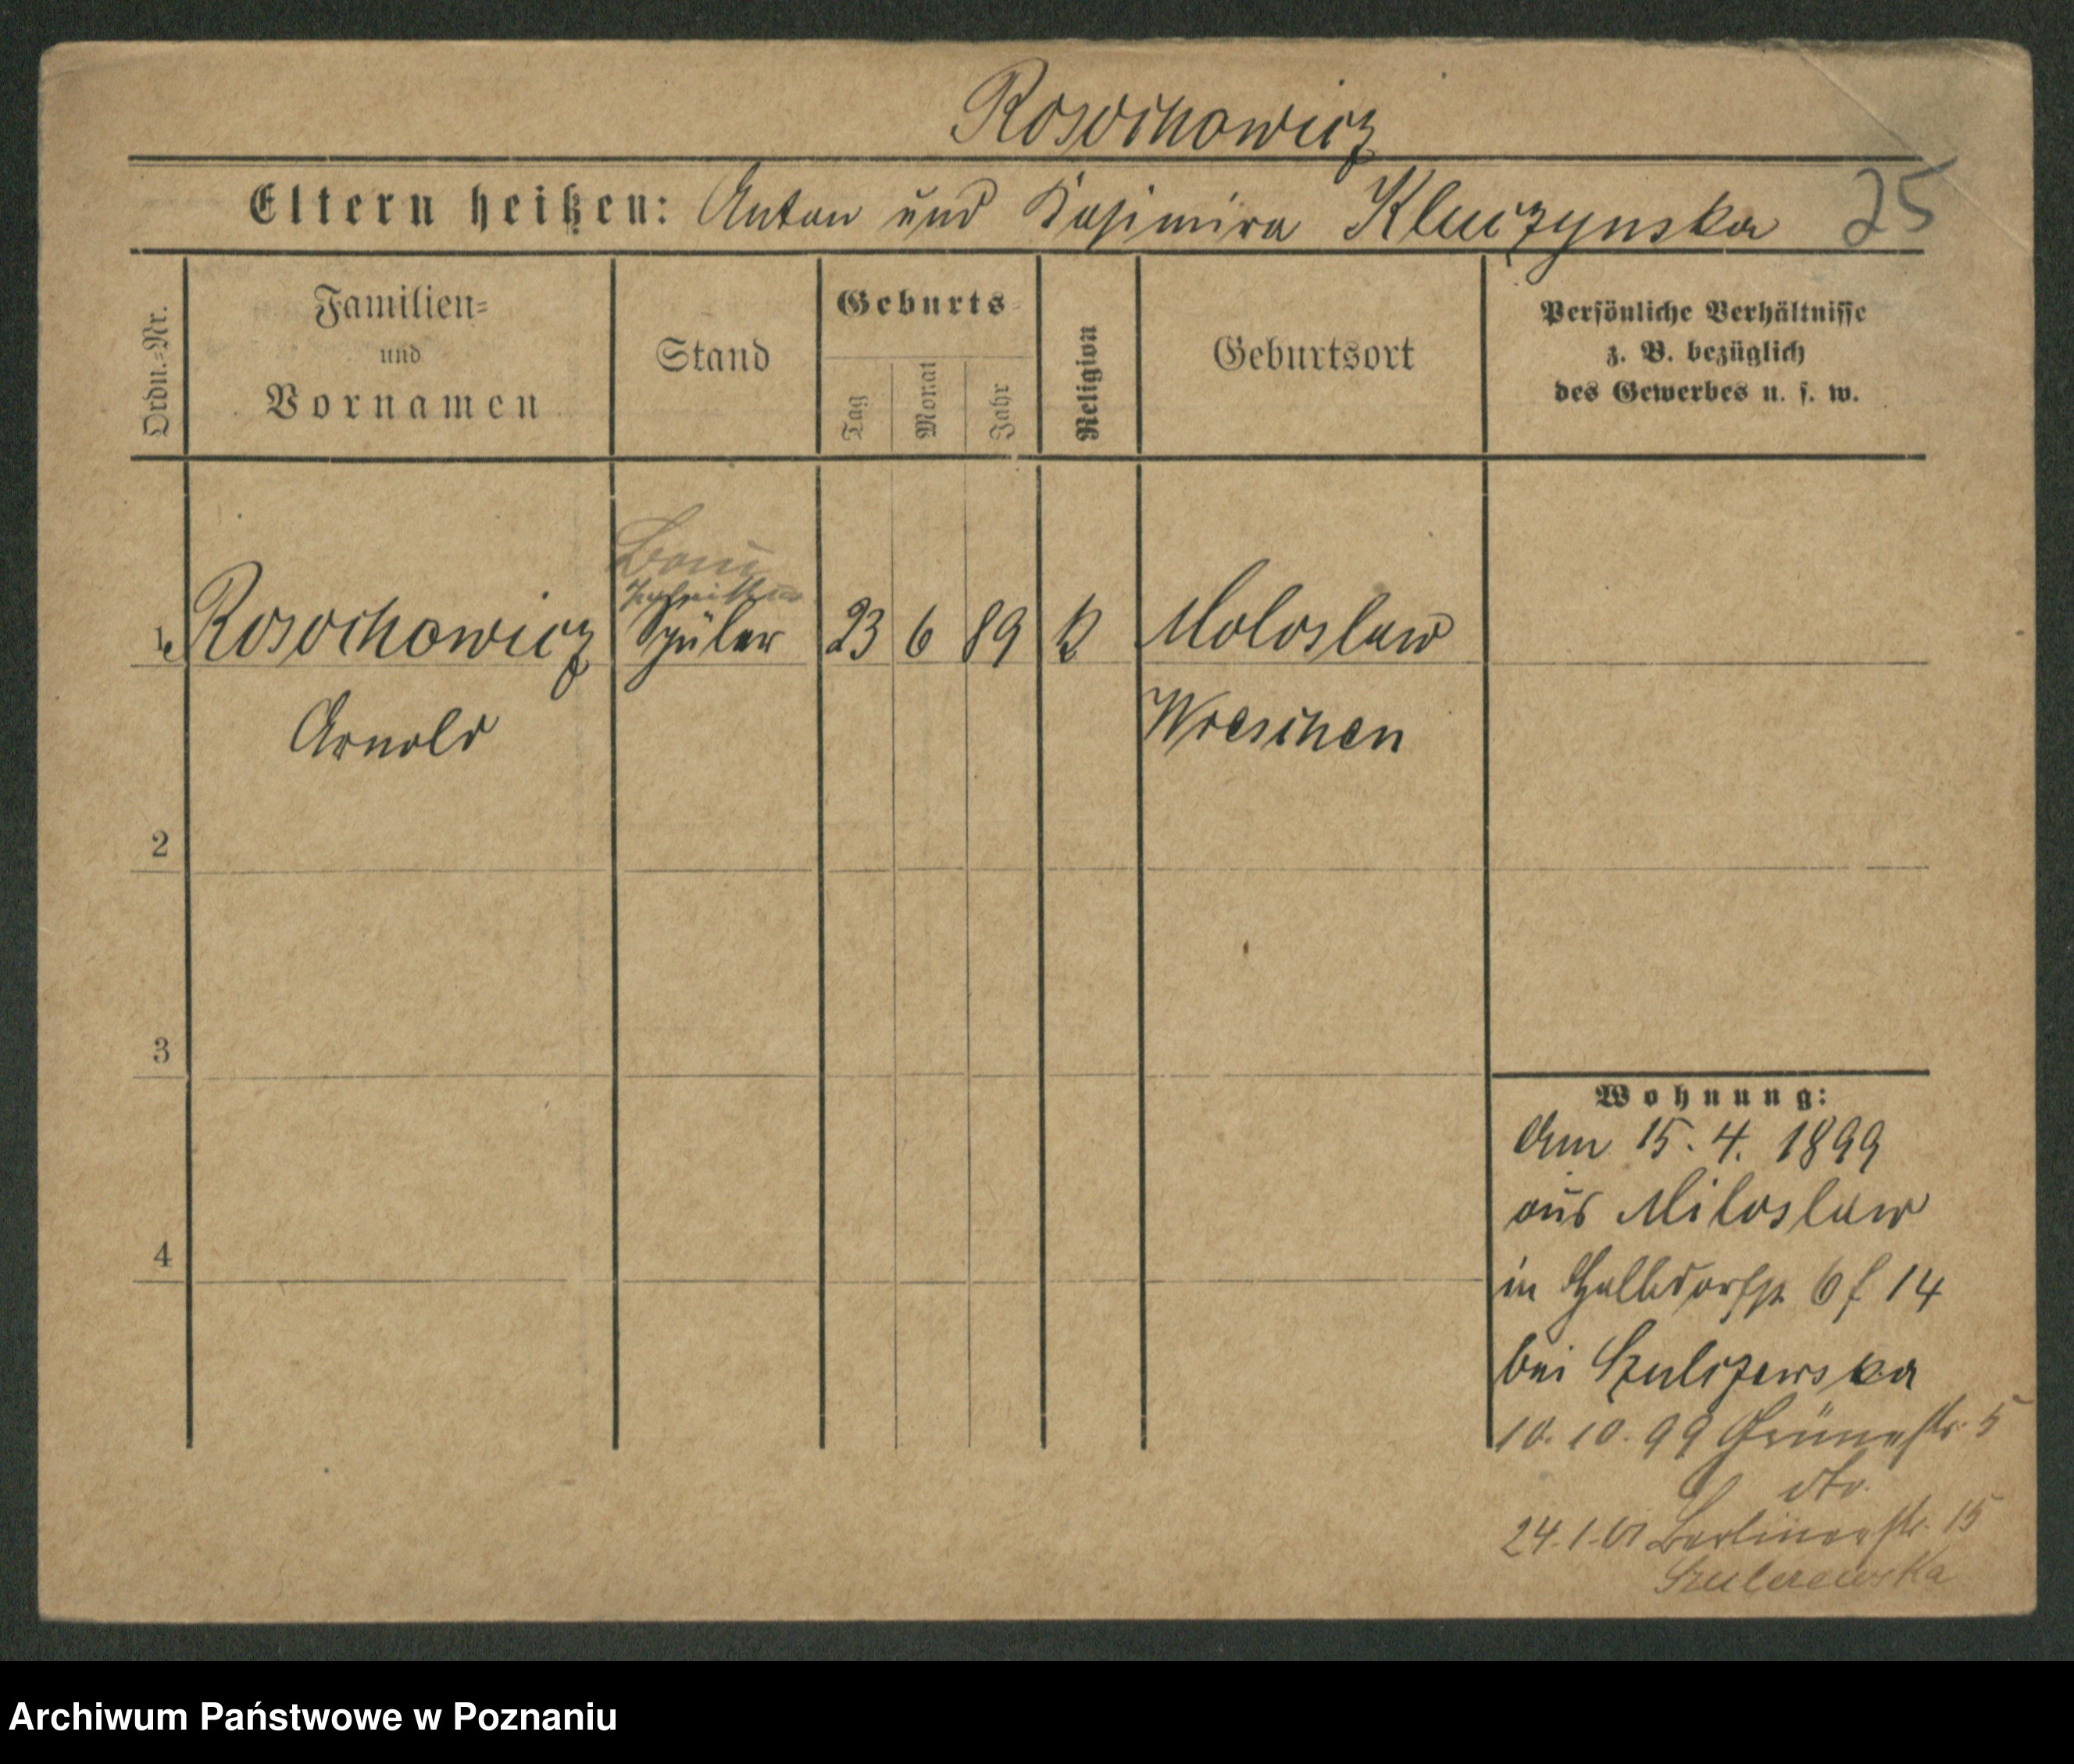 Rosochowicz
Eltern heißen: Anton und Kasimira Kluczynska 25
Ordn.-Nr.
Familien=
und
Vornamen
Stand
Geburts=
Tag
Monat
Jahr
Religion
Geburtsort
Persönliche Verhältnisse
z. B. bezüglich
des Gewerbes u. s. w.
1. Rosochowicz Schüler 23 6 89 K Moloslaw
Arnold Wreschen
2
3
4
Wohnung:
Am 15. 4. 1899
aus Miloslaw
in Halbdorfstr 6 f 14
bei Szulczewska
10. 10. 99 Grünestr. 5
dto.
24. 1. 01 Berlinerstr. 15
Szulczewska
Archiwum Państwowe w Poznaniu